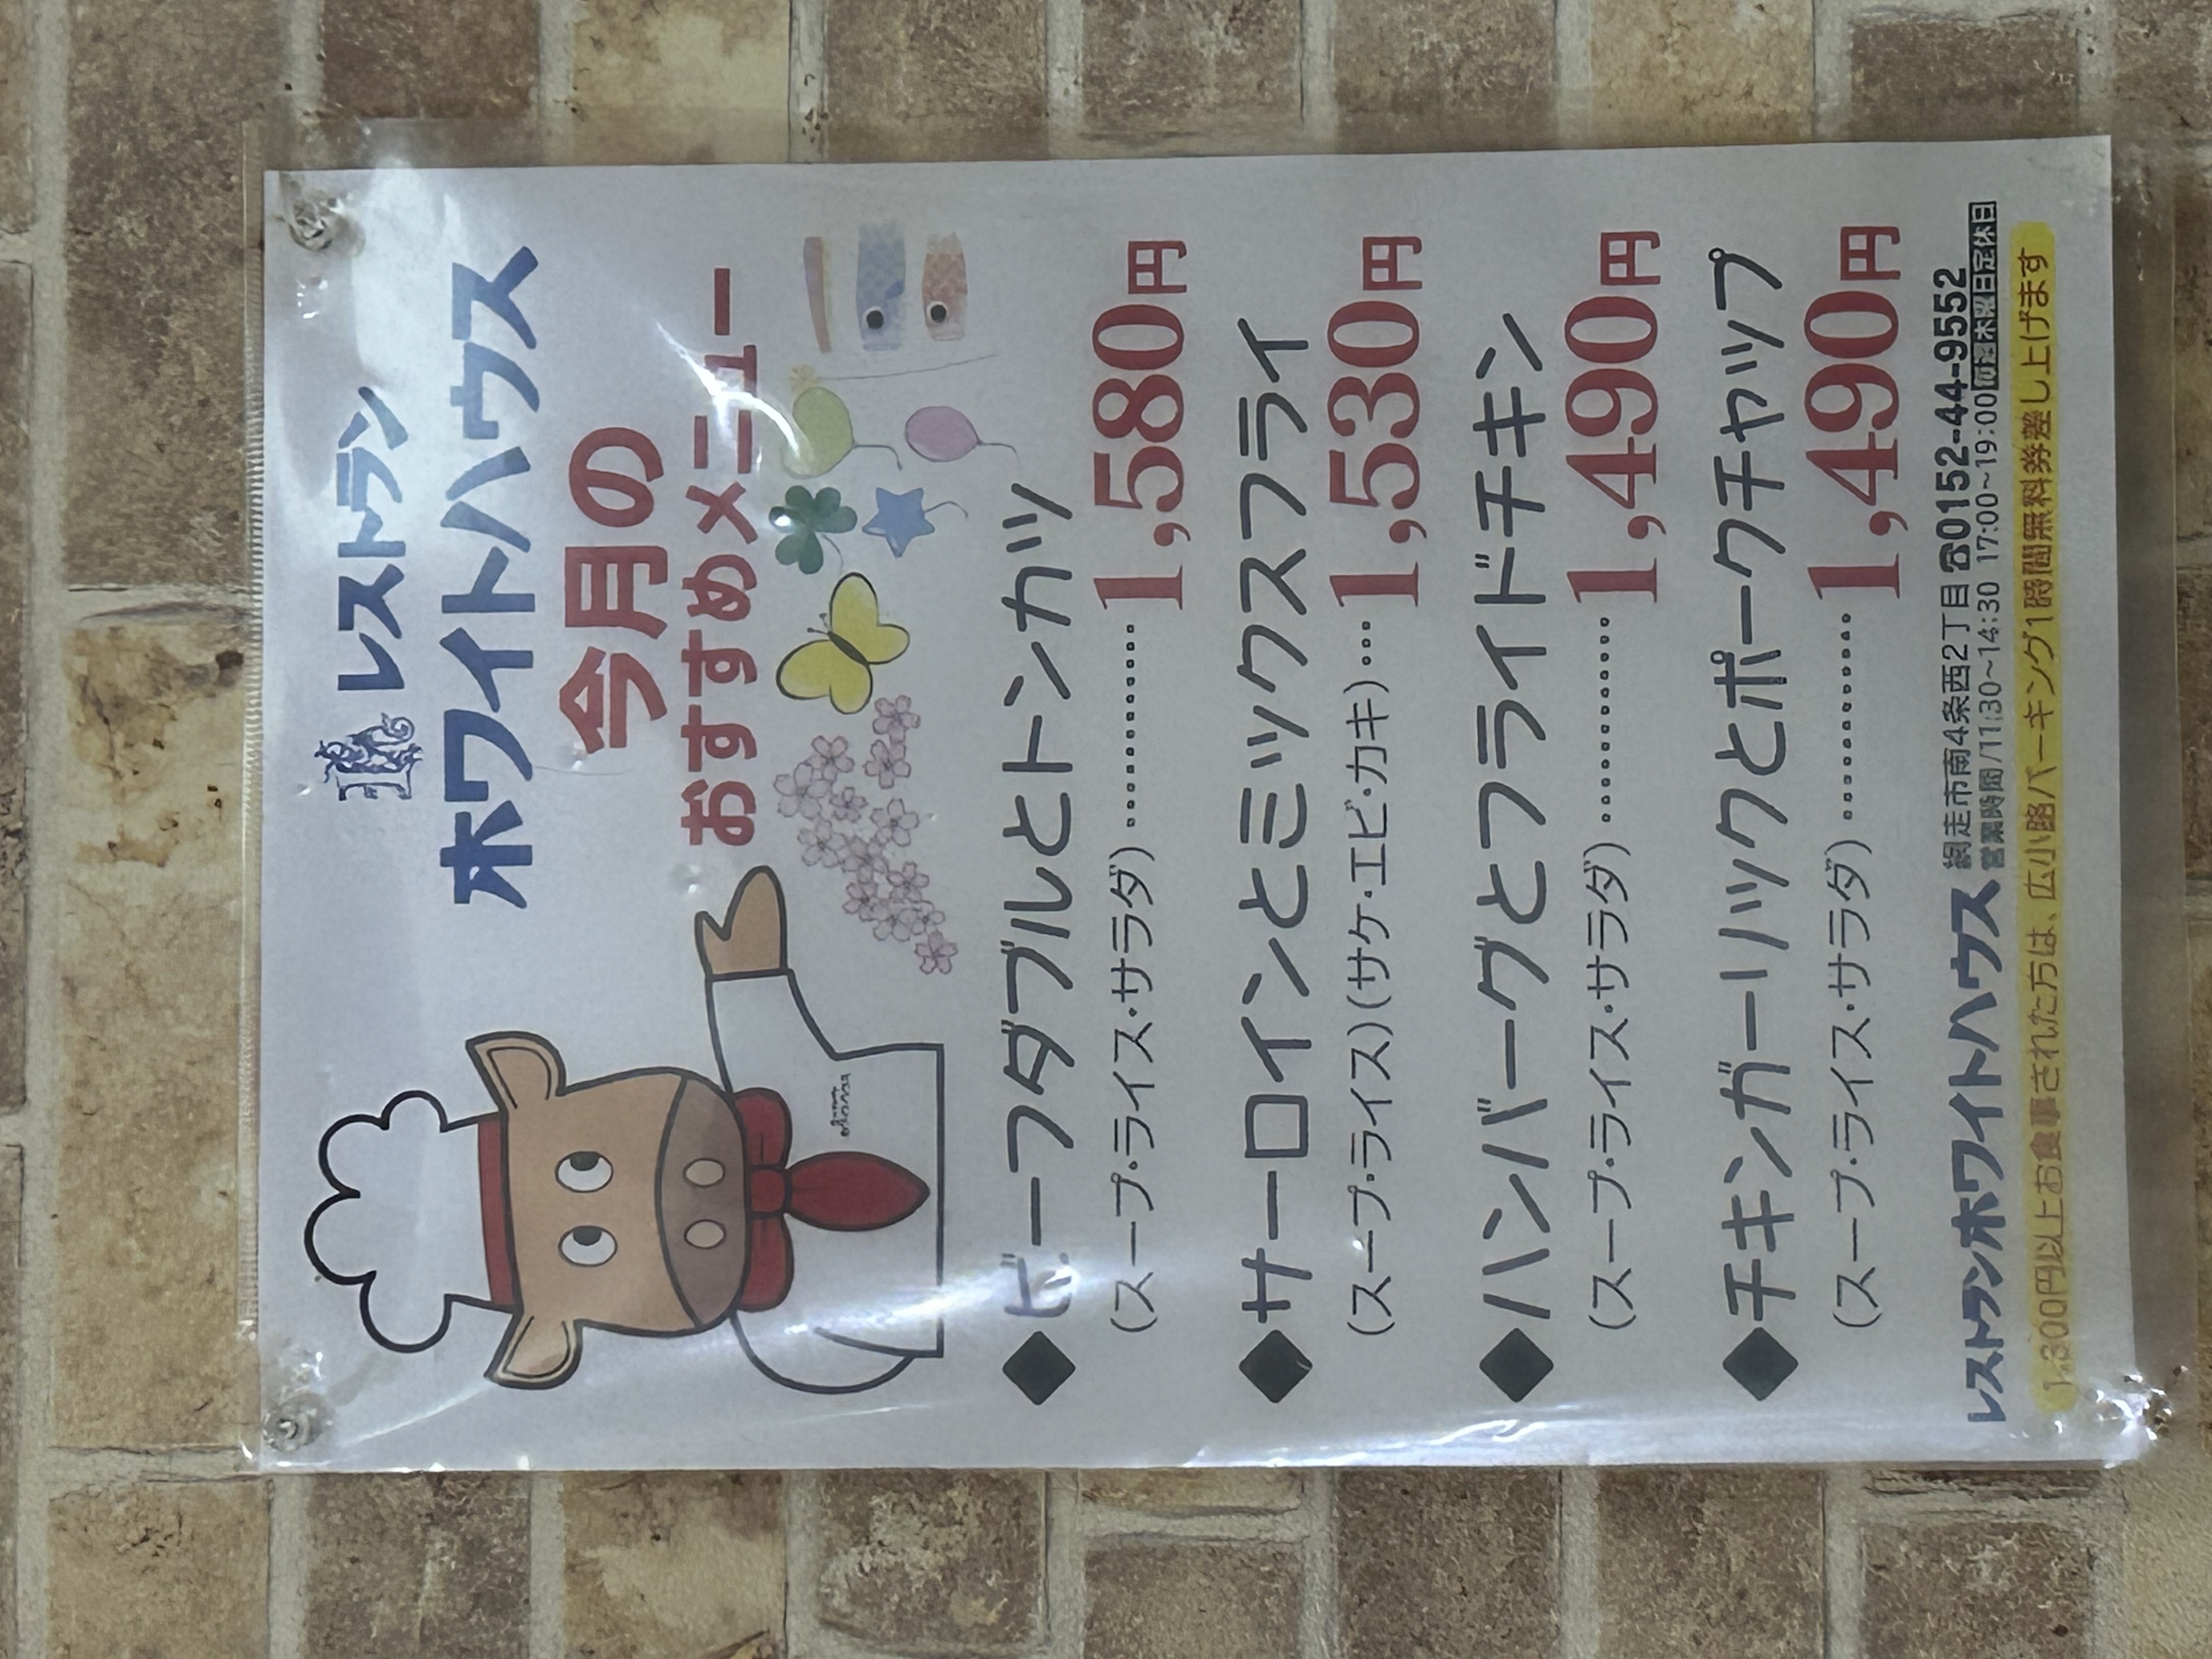 レストラン
ホワイトハウス
今月の
おすすめメニュー
◆ビーフダブルとトンカツ
(スープ・ライス・サラダ)…………1,580円
◆サーロインとミックスフライ
(スープ・ライス)(サケ・エビ・カキ)…1,530円
◆ハンバーグとフライドチキン
(スープ・ライス・サラダ)…………1,490円
◆チキンガーリックとポークチャップ
(スープ・ライス・サラダ)…………1,490円
レストランホワイトハウス
網走市南4条西2丁目 ☎0152-44-9552
営業時間/11:30~14:30 17:00~19:00 毎週木曜日定休日
1,300円以上お食事された方は、広小路パーキング1時間無料券差し上げます